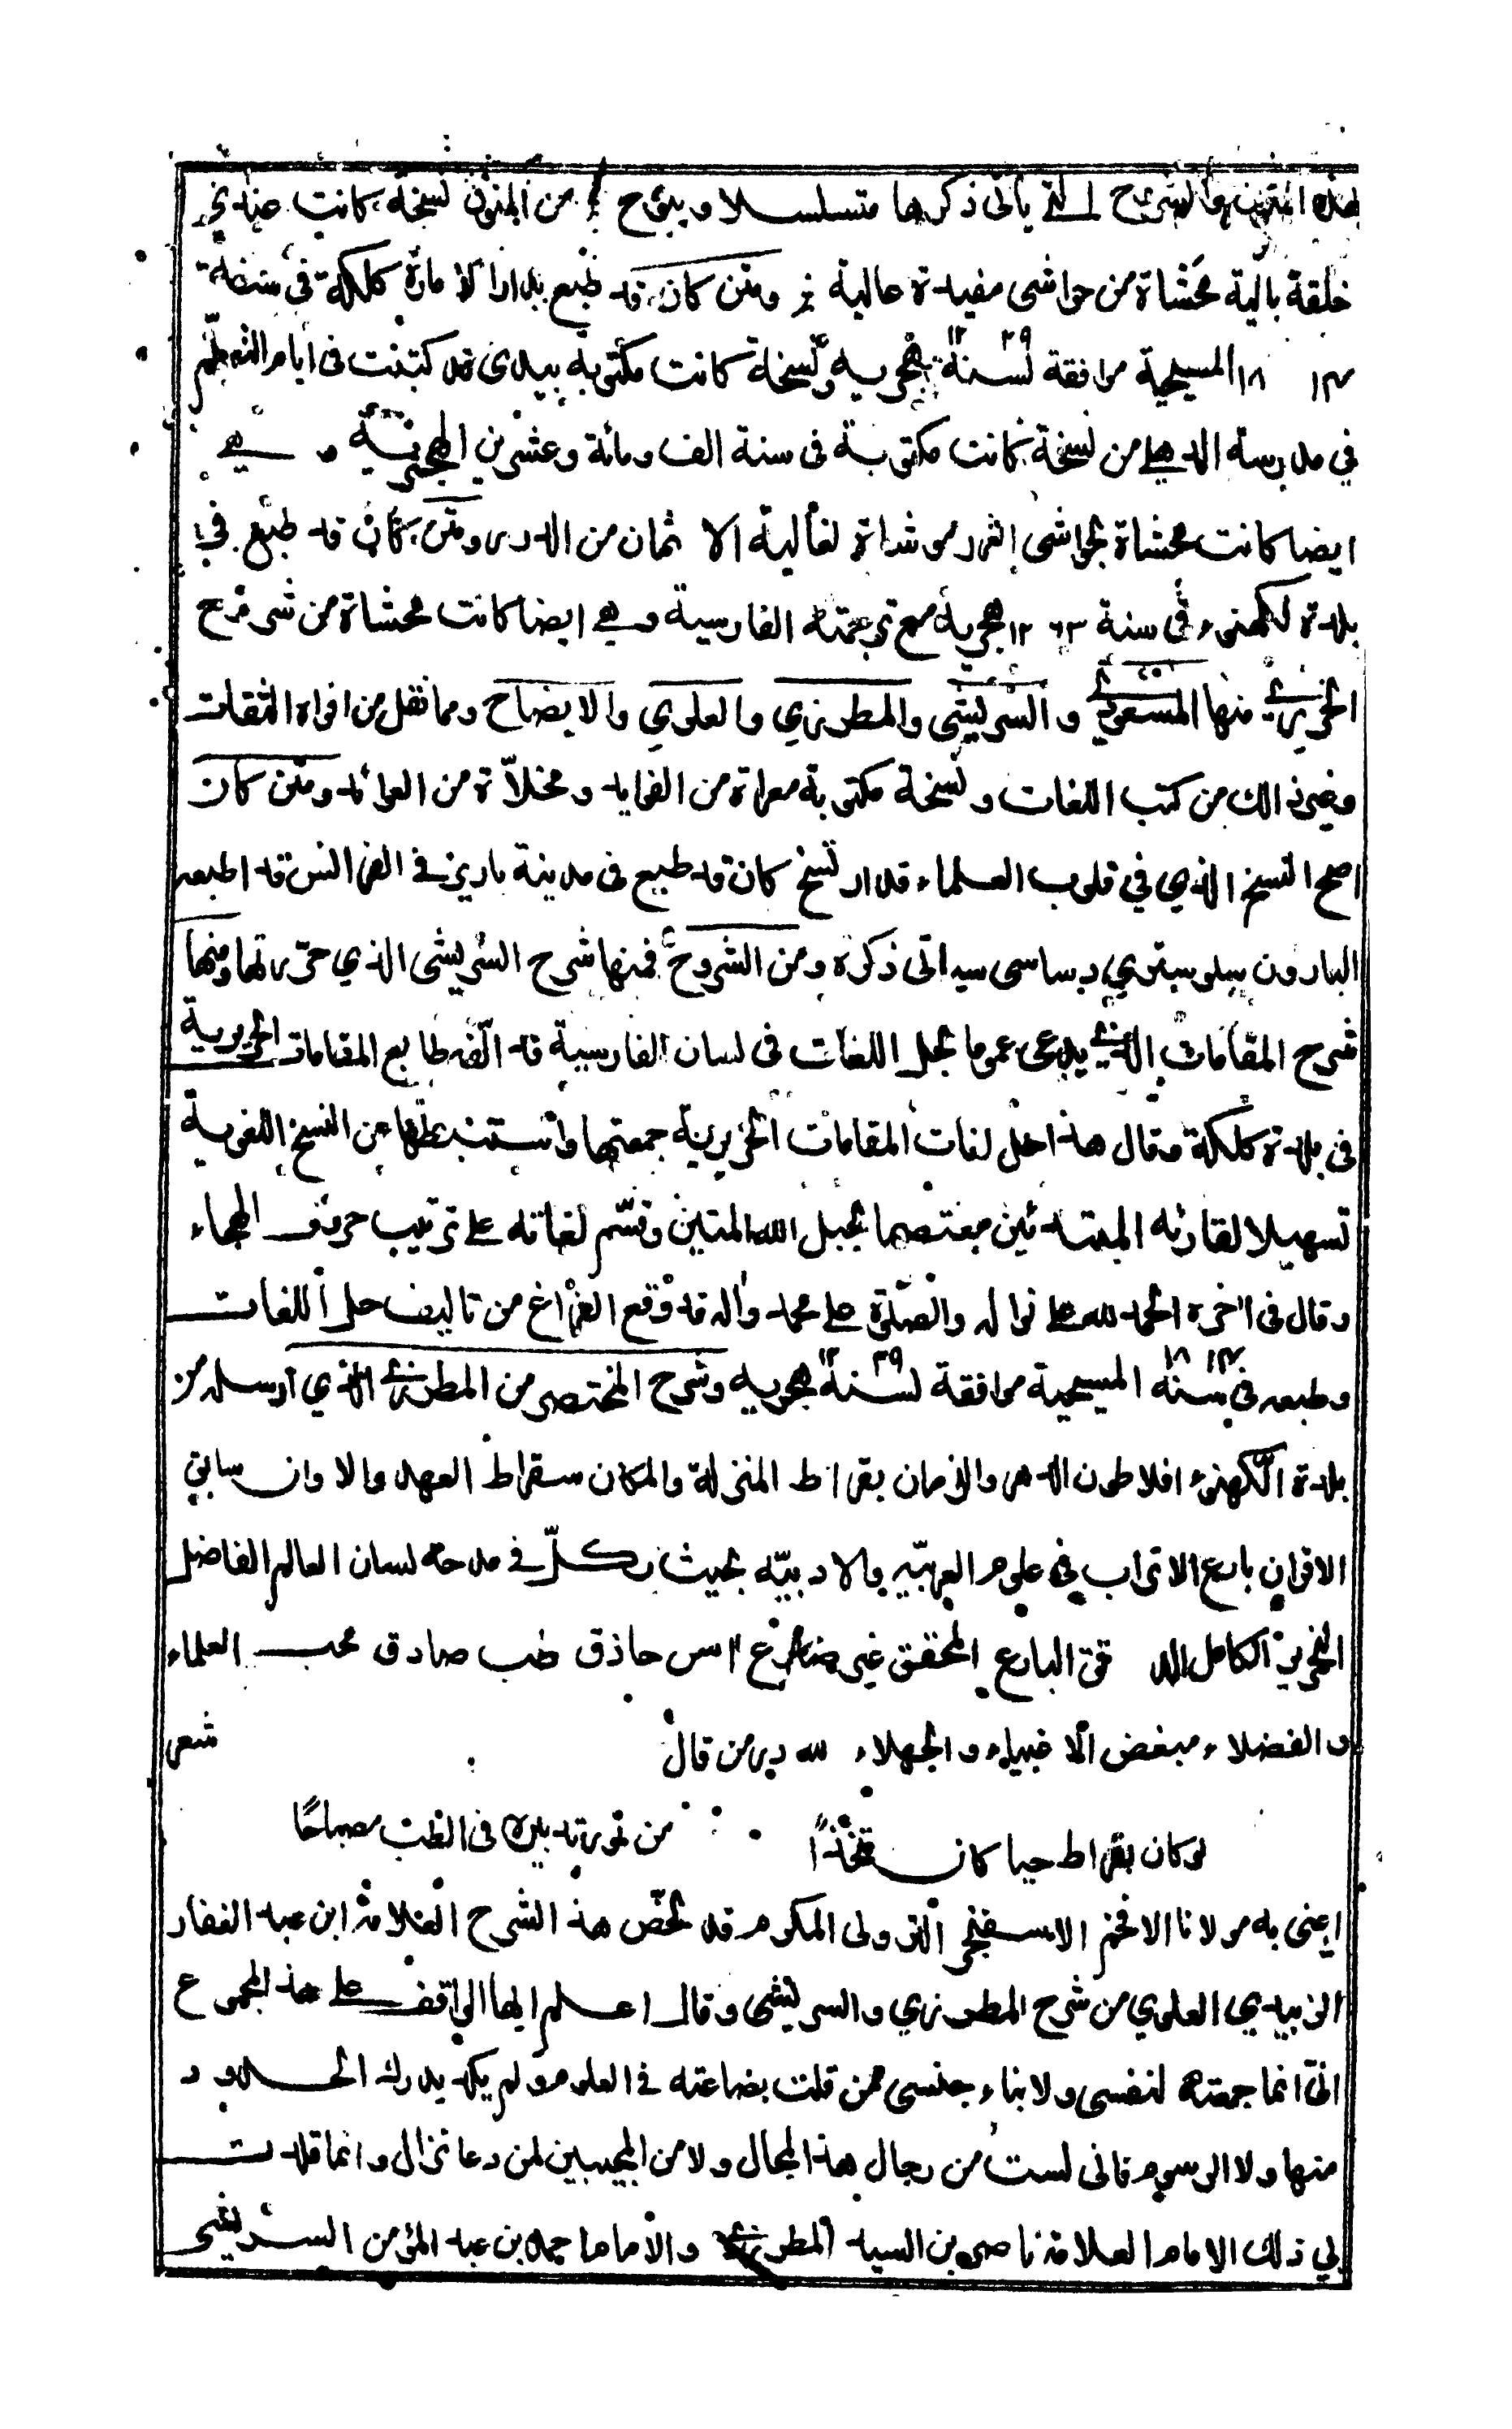 لهذه المتون والشروح التي يأتى ذكرها متسلسلا وبنوح من المتون نسخة كانت عندى
خلقة بالية محشاة من حواشى مفيدة عالية ومتن كان قد طبع بدار الامارة كلكته فى سنة
١٨ المسيحية موافقة لسنة ١٢٢٩ هجريه ونسخة كانت مكتوبة بيدى قد كتبت فى ايام التعلم
في مدرسة الدهلي من نسخة كانت مكتوبة فى سنة الف ومائة وعشرين الهجرية وهي
ايضا كانت محشاة بحواشى لغالية الاثمان من الدرر ومتن كان قد طبع في
بلدة لكهنوء فى سنة ١٢٦٣ هجرية مع ترجمته الفارسية وهي ايضا كانت محشاة من شروح
الحريري منها المسعودي و الشريشى والمطرزي والعلوي والايضاح ومما نقل من افواه الثقات
وغير ذالك من كتب اللغات ونسخة مكتوبة معراة من الفوايد ومخلاّة من العوائد ومتن كان
اصح النسخ الذي في قلوب العلماء قد ارتسخ كان قد طبع فى مدينة باريز في الفرانس قد اطبعه
البارون سلوستري دساسى سيد اتى ذكره ومن الشروح فمنها شرح الشريشى الذي حرّرتها ومنها
شرح المقامات الذي يدعى عموما بحل اللغات فى لسان الفارسية قد الّفه طابع المقامات الحريرية
فى بلدة كلكتة وقال هذا حل لغات المقامات الحريرية جمعتها واستنبطتها من النسخ اللغوية
تسهيلا لقارئه المبتدئين معتصما بحبل الله المتين وقسّم لغاته على ترتيب حروف الهجاء
وقال فى اخره الحمد لله على نواله والصلوة على محمد واله قد وقع الفراغ من تاليف حل اللغات
وطبعه في سنة ١٨١٤ المسيحية موافقة لسنة ١٢٢٩ هجريه وشرح المختصر من المطرزي الذي ارسله من
بلدة الكهنوء افلاطون الدهر والزمان بقراط المنزلة والمكان سقراط العهد والاوان سابق
الاقران بارع الاتراب في علوم العربيّه والادبيّه بحيث كلّ في مدحه لسان العالم الفاضل
النحرير الكامل المدقق البارع المحقق غير حاذق طب صادق محب العلماء
والفضلاء مبغض الاغبياء والجهلاء لله در من قال شعر
لوكان بقراط حيا كان متخذًا من نور تدبيره فى الطب مصباحًا
اعنى به مولانا الافخم قد لخّص هذ الشرح العلامة ابن عبد الغفار
الزبيدي العلوي من شرح المطرزي والشريشى وقال اعلم ايها الواقف على هذ المجموع
انى انما جمعته لنفسى ولابناء جنسى ممن قلت بضاعته في العلوم ولم يكد يدرك الحدود
منها ولا الرسوم فانى لست من رجال هذ المجال ولا من المجيبين لمن دعا نزال وانما قلدت
في ذلك الامام العلامة ناصر بن السيد المطرزي والامام احمد بن عبد المؤمن الشريشى